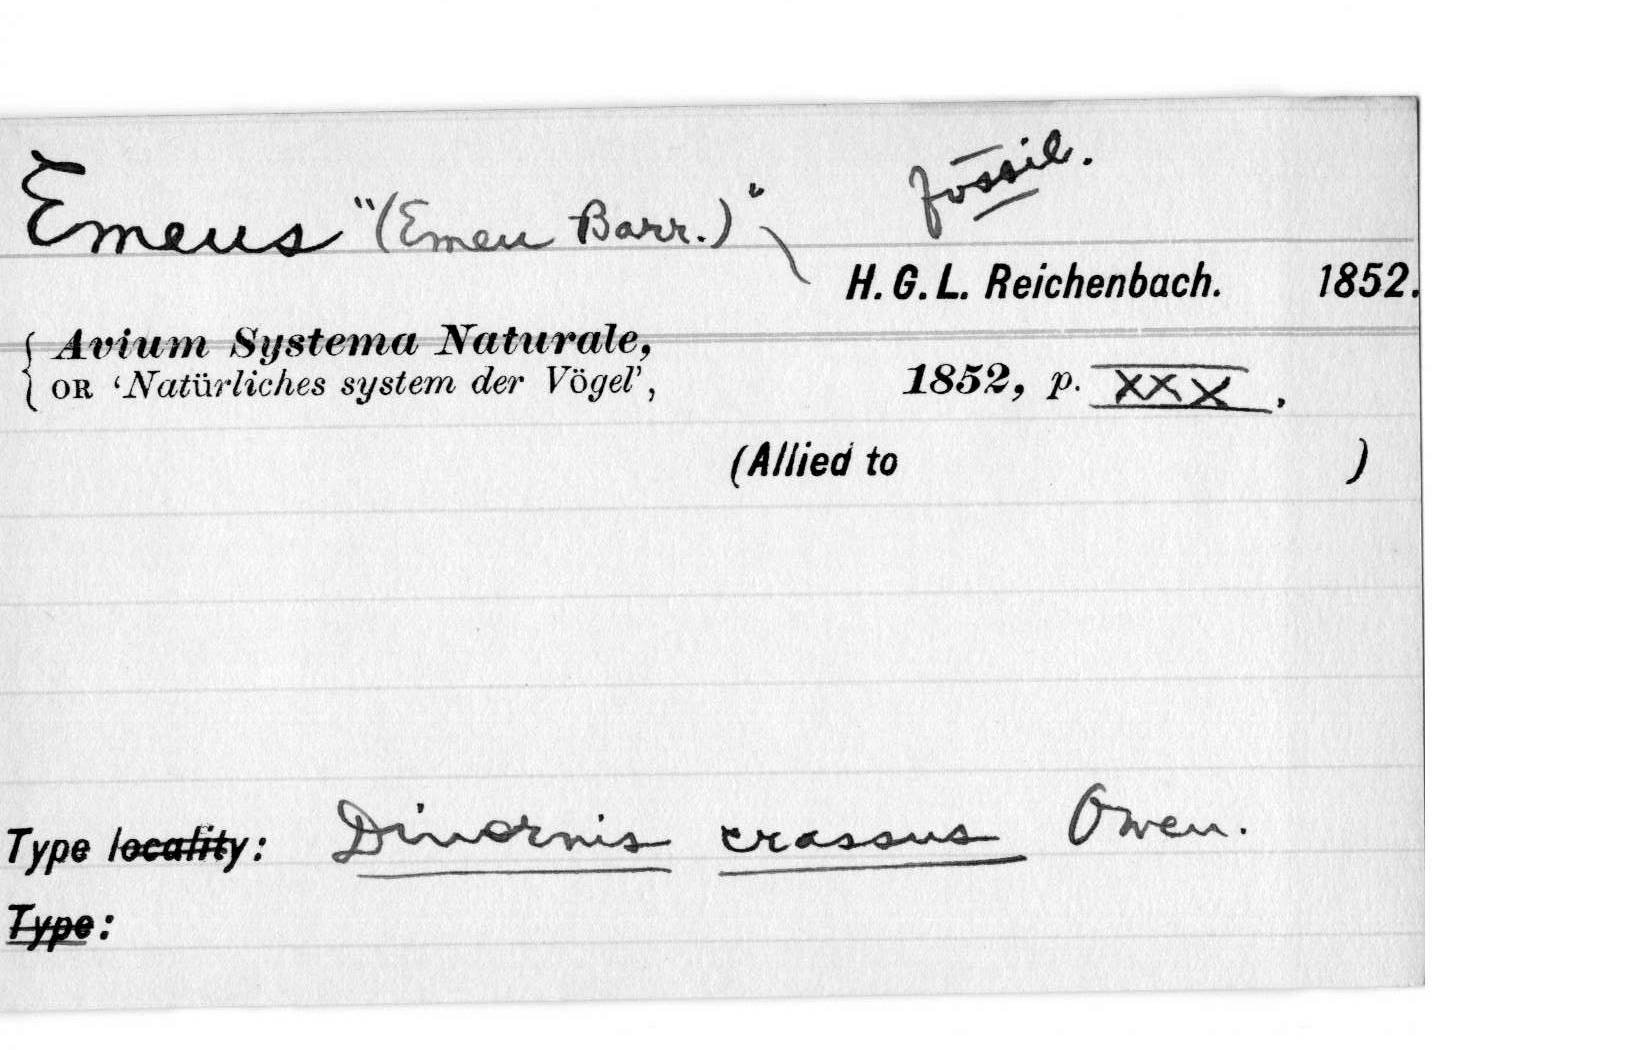 Emeus "(Emeu Barr.)" fossil.
H. G. L. Reichenbach. 1852.
Avium Systema Naturale,
OR 'Natürliches system der Vögel', 1852, p. XXX.
(Allied to )
Type locality: Dinornis crassus Owen.
Type: